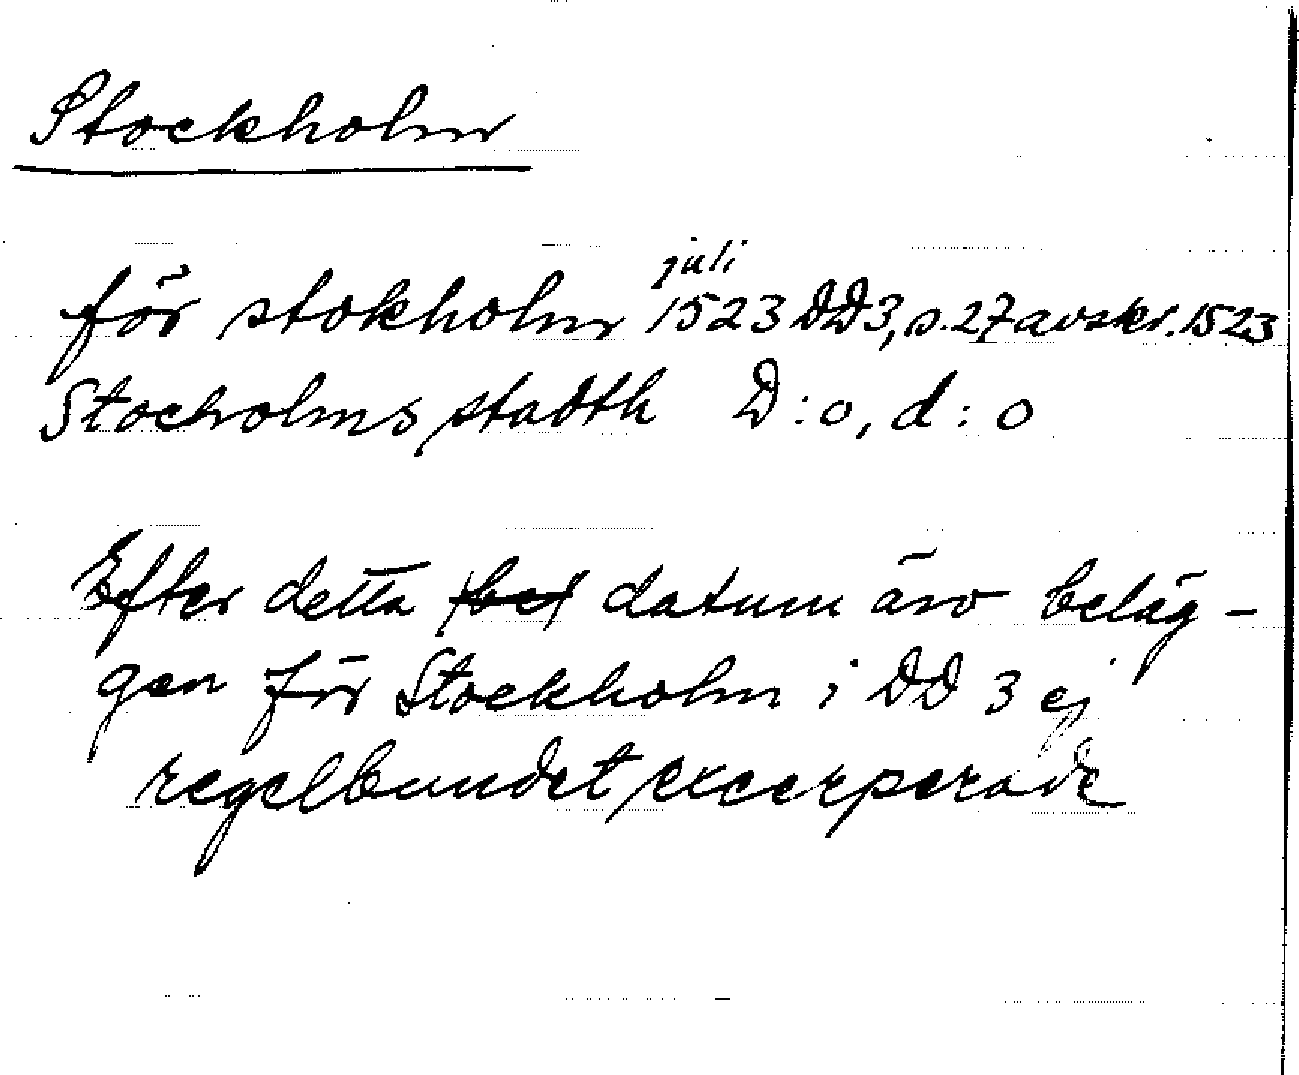 Stockholm
juli
för stokholm 1523 DD3, s. 27 avskr. 1523
Stocholms stadth D:o, d:o
Efter detta datum äro beläg-
gen för Stockholm i DD 3 ej
regelbundet excerperade